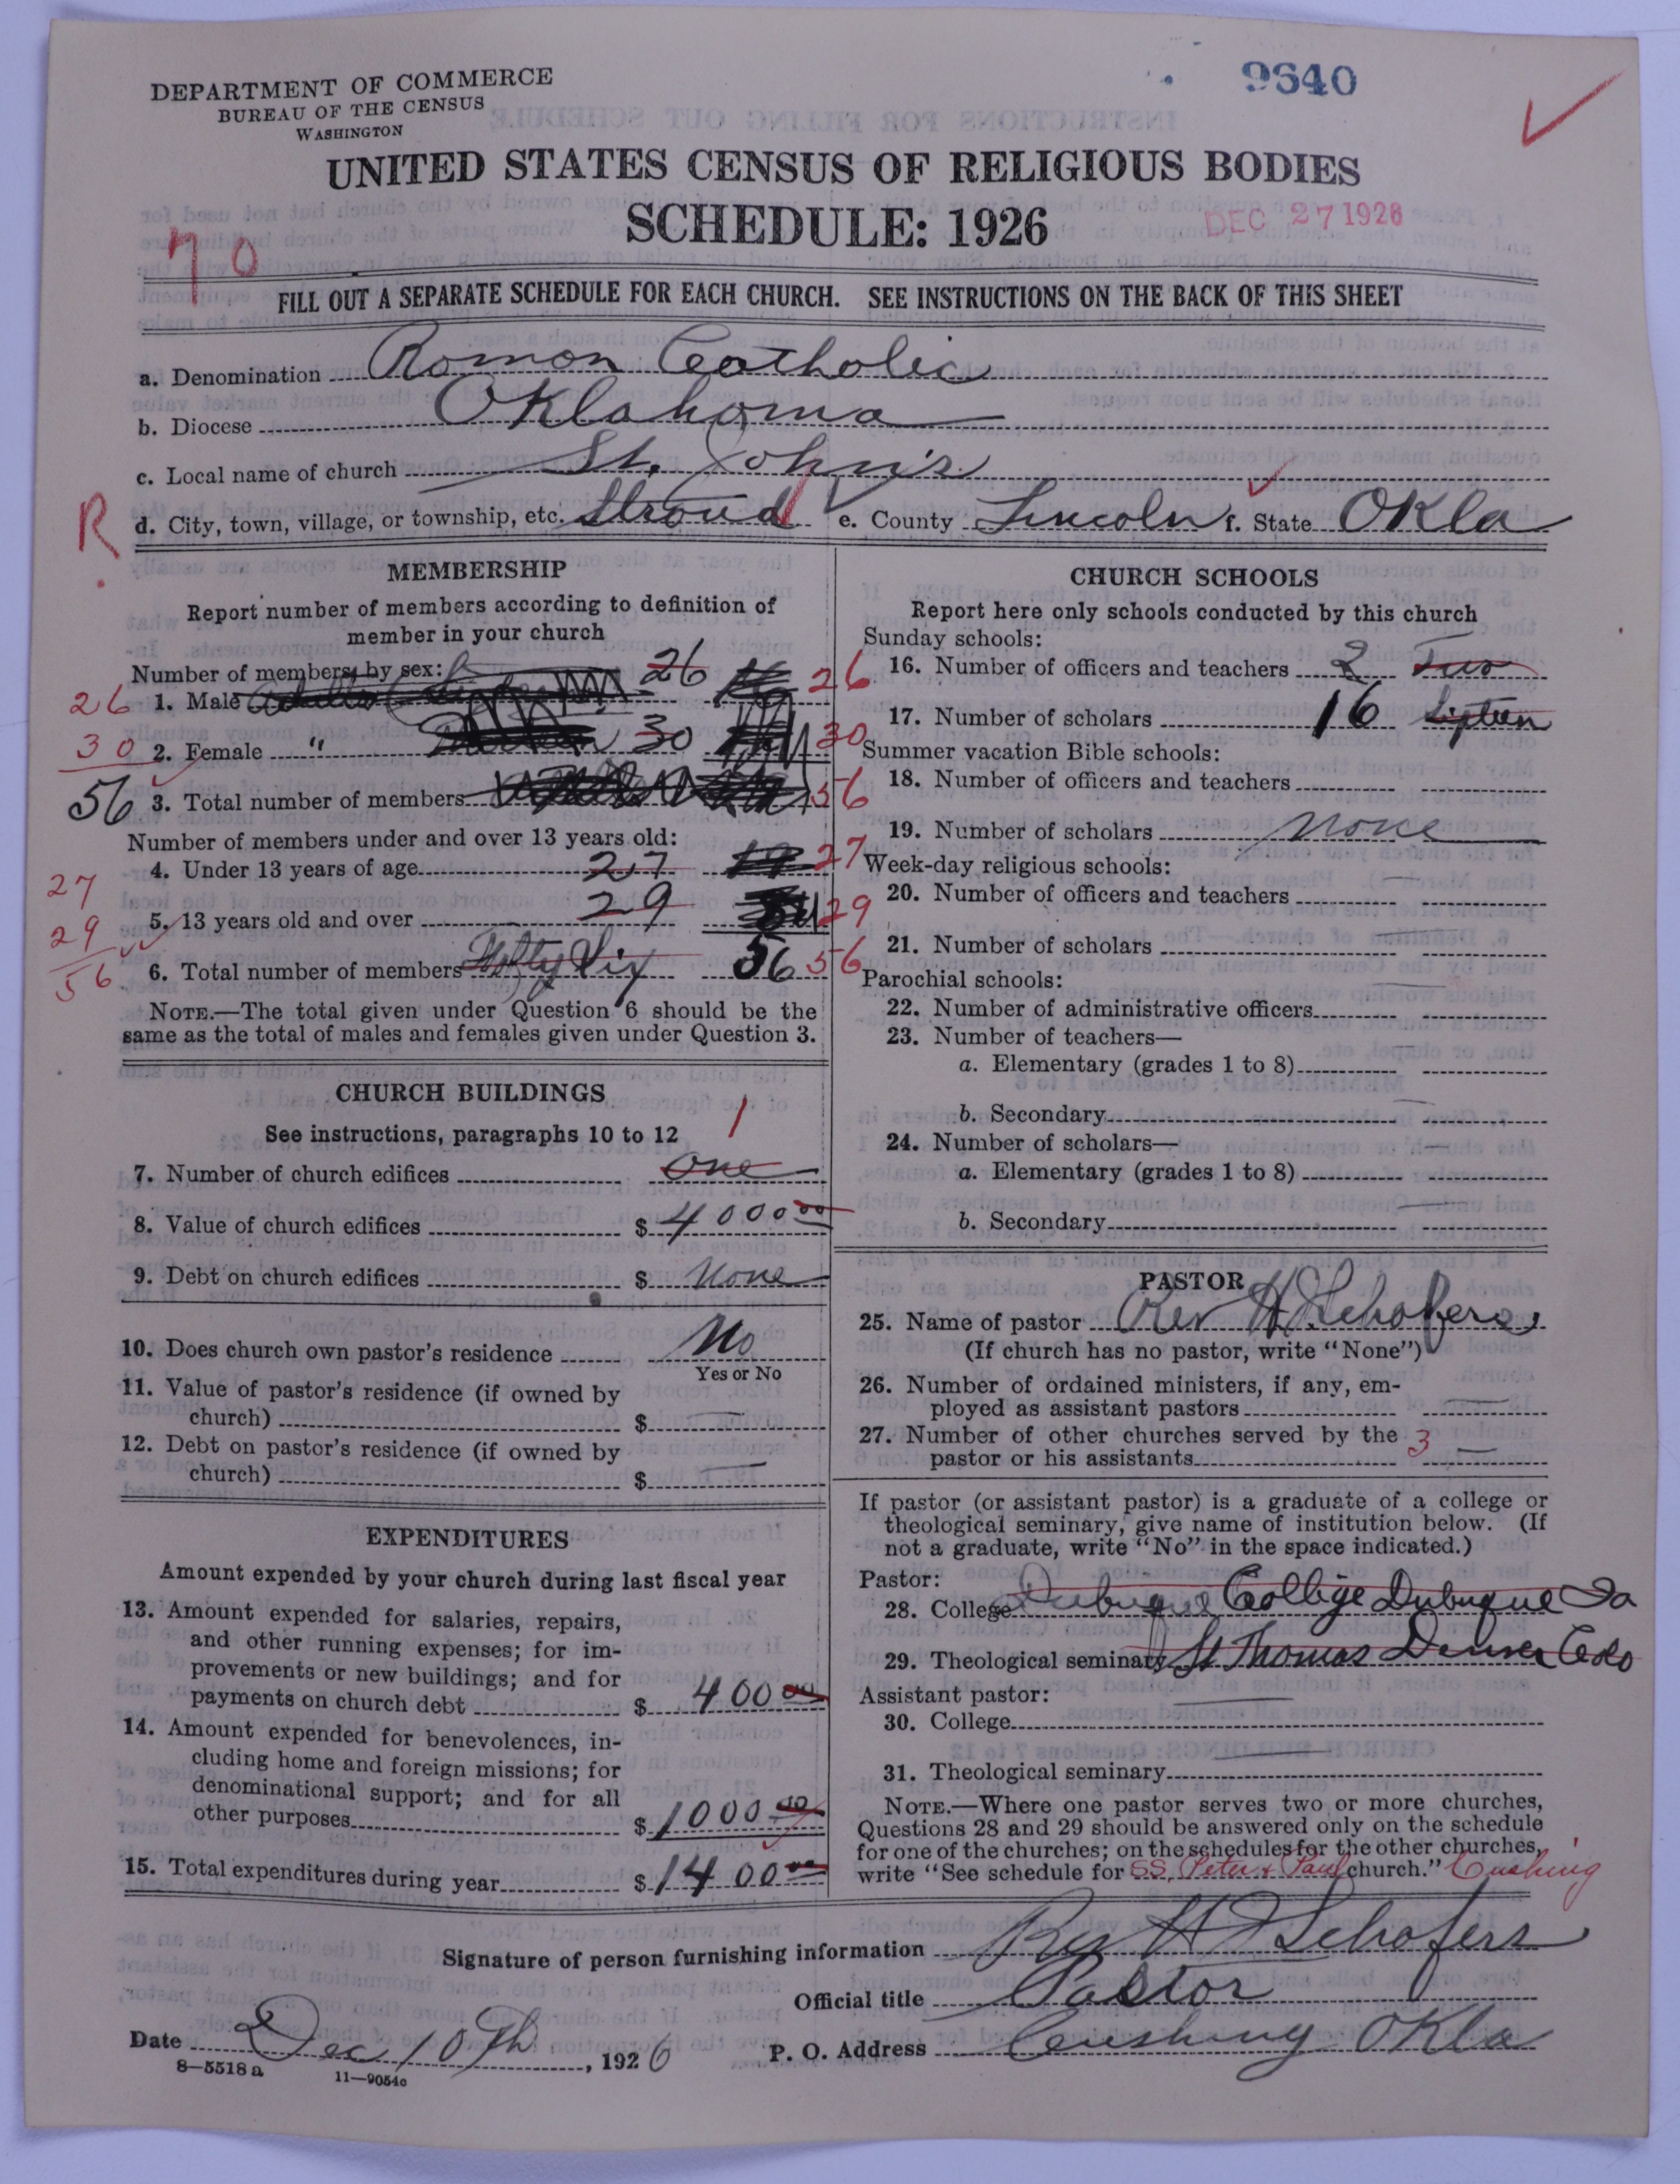 DEPARTMENT OF COMMERCE
BUREAU OF THE CENSUS
WASHINGTON
9640
UNITED STATES CENSUS OF RELIGIOUS BODIES
SCHEDULE: 1926
DEC 27 1926
70
FILL OUT A SEPARATE SCHEDULE FOR EACH CHURCH. SEE INSTRUCTIONS ON THE BACK OF THIS SHEET
a. Denomination Roman Catholic
b. Diocese Oklahoma
c. Local name of church St. John's
R d. City, town, village, or township, etc. Stroud e. County Lincoln f. State Okla
MEMBERSHIP
Report number of members according to definition of
member in your church
Number of members by sex:
26 1. Male 26 26
30 2. Female " 30 30
56 3. Total number of members 56
Number of members under and over 13 years old:
4. Under 13 years of age 27 27
27
5. 13 years old and over 29 29
29
6. Total number of members Fifty Six 56 56
56
NOTE.—The total given under Question 6 should be the
same as the total of males and females given under Question 3.
CHURCH BUILDINGS
See instructions, paragraphs 10 to 12
1
7. Number of church edifices One
8. Value of church edifices $ 4000 00
9. Debt on church edifices $ None
10. Does church own pastor's residence No
Yes or No
11. Value of pastor's residence (if owned by
church) $ —
12. Debt on pastor's residence (if owned by
church) $ —
EXPENDITURES
Amount expended by your church during last fiscal year
13. Amount expended for salaries, repairs,
and other running expenses; for im-
provements or new buildings; and for
payments on church debt $ 400 00
14. Amount expended for benevolences, in-
cluding home and foreign missions; for
denominational support; and for all
other purposes $ 1000 00
15. Total expenditures during year $ 1400 00
CHURCH SCHOOLS
Report here only schools conducted by this church
Sunday schools:
16. Number of officers and teachers 2 Two
17. Number of scholars 16 Sixteen
Summer vacation Bible schools:
18. Number of officers and teachers
19. Number of scholars None
Week-day religious schools:
20. Number of officers and teachers —
21. Number of scholars —
Parochial schools:
22. Number of administrative officers —
23. Number of teachers—
a. Elementary (grades 1 to 8) —
b. Secondary —
24. Number of scholars—
a. Elementary (grades 1 to 8) —
b. Secondary —
PASTOR
25. Name of pastor Rev H Schafers
(If church has no pastor, write "None")
26. Number of ordained ministers, if any, em-
ployed as assistant pastors —
27. Number of other churches served by the
pastor or his assistants 3 —
If pastor (or assistant pastor) is a graduate of a college or
theological seminary, give name of institution below. (If
not a graduate, write "No" in the space indicated.)
Pastor:
28. College Dubuque College Dubuque Ia
29. Theological seminary St Thomas Denver Colo
Assistant pastor:
30. College —
31. Theological seminary —
NOTE.—Where one pastor serves two or more churches,
Questions 28 and 29 should be answered only on the schedule
for one of the churches; on the schedules for the other churches,
write "See schedule for SS. Peter & Paul church." Cushing
Signature of person furnishing information Rev H Schafers
Official title Pastor
Date Dec 10th, 1926 P. O. Address Cushing Okla
8—5518 a 11—9054c